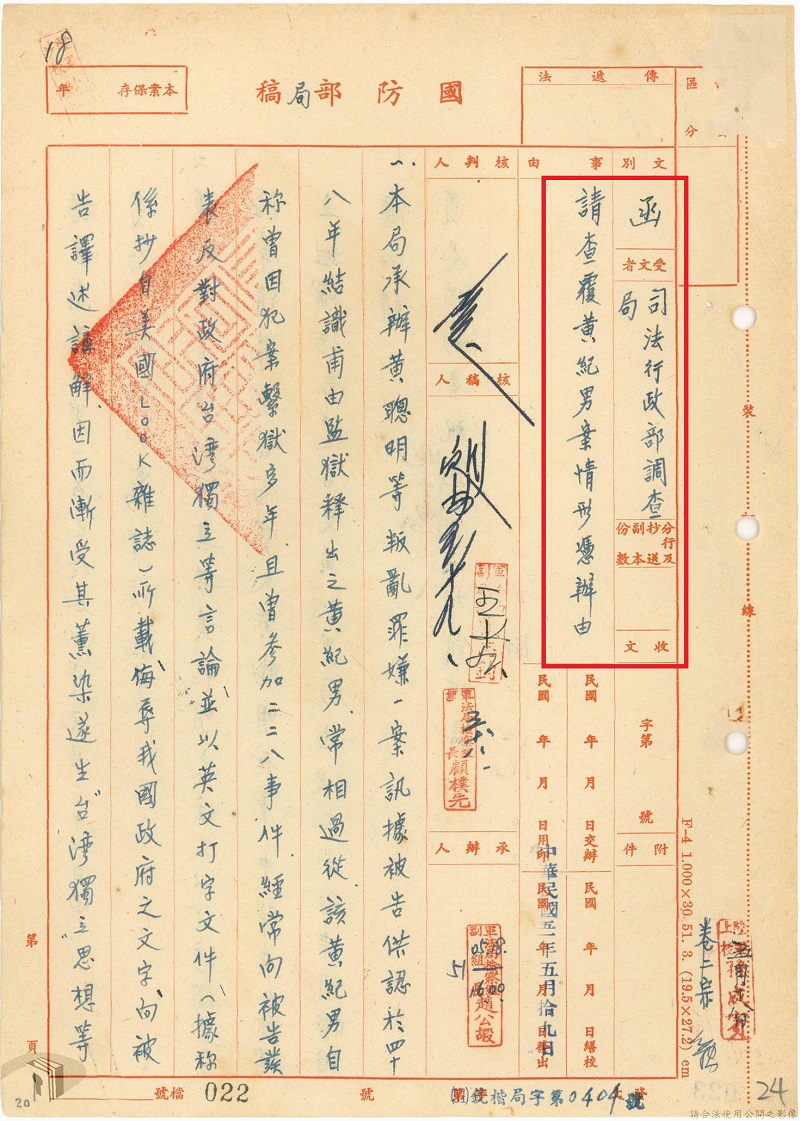 18
本案保存 年
國防部局稿
傳遞法
區分
文別
函
受文者
司法行政部調查局
分行及抄送副本份數
收文
字第 號
附件
事由
請查覆黃紀男案情形憑辦由
民國 年 月 日交辦
民國 年 月 日繕校
民國 年 月 日用印
民國 年 月 日發出
中華民國五一年五月拾九日
核判人
核稿人
軍法局檢察組長顧樸先
承辦人
趙公嘏
0518.
1600
一、本局承辦黃聰明等叛亂罪嫌一案訊據被告供認於四十
八年結識甫由監獄釋出之黃紀男常相過從該黃紀男自
稱曾因犯案繫獄多年且曾參加二二八事件經常向被告發
表反對政府台灣獨立等言論並以英文打字文件(據稱
係抄自美國LOOK雜誌)所載侮辱我國政府之文字向被
告譯述講解因而漸受其薰染遂生台灣獨立思想等
第 頁
裝
線
F-4 1.000×30 51. 3. (19.5×27.2) cm
卷二宗
檔號 022 號
銳楷局字第0404號
023
24
20
請合法使用公開之影像